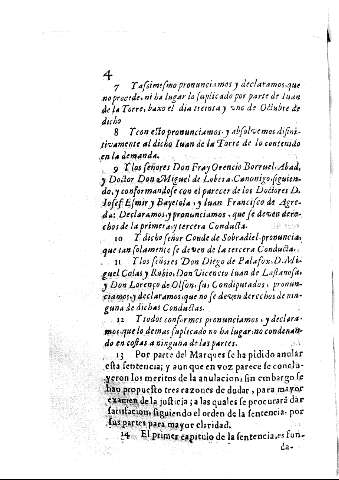 4
7 Y assimesmo pronunciamos y declaramos que
no procede, ni ha lugar lo suplicado por parte de Iuan
de la Torre, baxo el dia treinta y uno de Octubre de
dicho
8 Y con esto pronunciamos y absolvemos difini-
tivamente al dicho Iuan de la Torre de lo contenido
en la demanda.
9 Y los señores Don Fray Orencio Borruel, Abad,
y Doctor Don Miguel de Lobera, Canonigo, siguien-
do, y conformandose con el parecer de los Doctores D.
Josef Esmir y Bayetola, y Iuan Francisco de Agre-
da: Declaramos y pronunciamos, que se deven dere-
chos de la primera, y tercera Conducta.
10 Y dicho señor Conde de Sobradiel pronuncia,
que tan solamente se deven de la tercera Conducta.
11 Y los señores Don Diego de Palafox, D. Mi-
guel Colas y Rubio, Don Vicencio Iuan de Lastanosa,
y Don Lorenço de Olson, sus Condiputados, pronun-
ciamos, y declaramos que no se deven derechos de nin-
guna de dichas Conductas.
12 Y todos conformes pronunciamos, y declara-
mos, que lo demas suplicado no ha lugar: no condenan-
do en costas a ninguna de las partes.
13 Por parte del Marques se ha pidido anular
esta sentencia; y aunque en voz parece se conclu-
yeron los meritos de la anulacion, sin embargo se
han propuesto tres razones de dudar, para mayor
examen de la justicia; a las quales se procurará dar
satisfacion, siguiendo el orden de la sentencia, por
sus partes para mayor claridad.
14 El primer capitulo de la sentencia, es fun-
da-